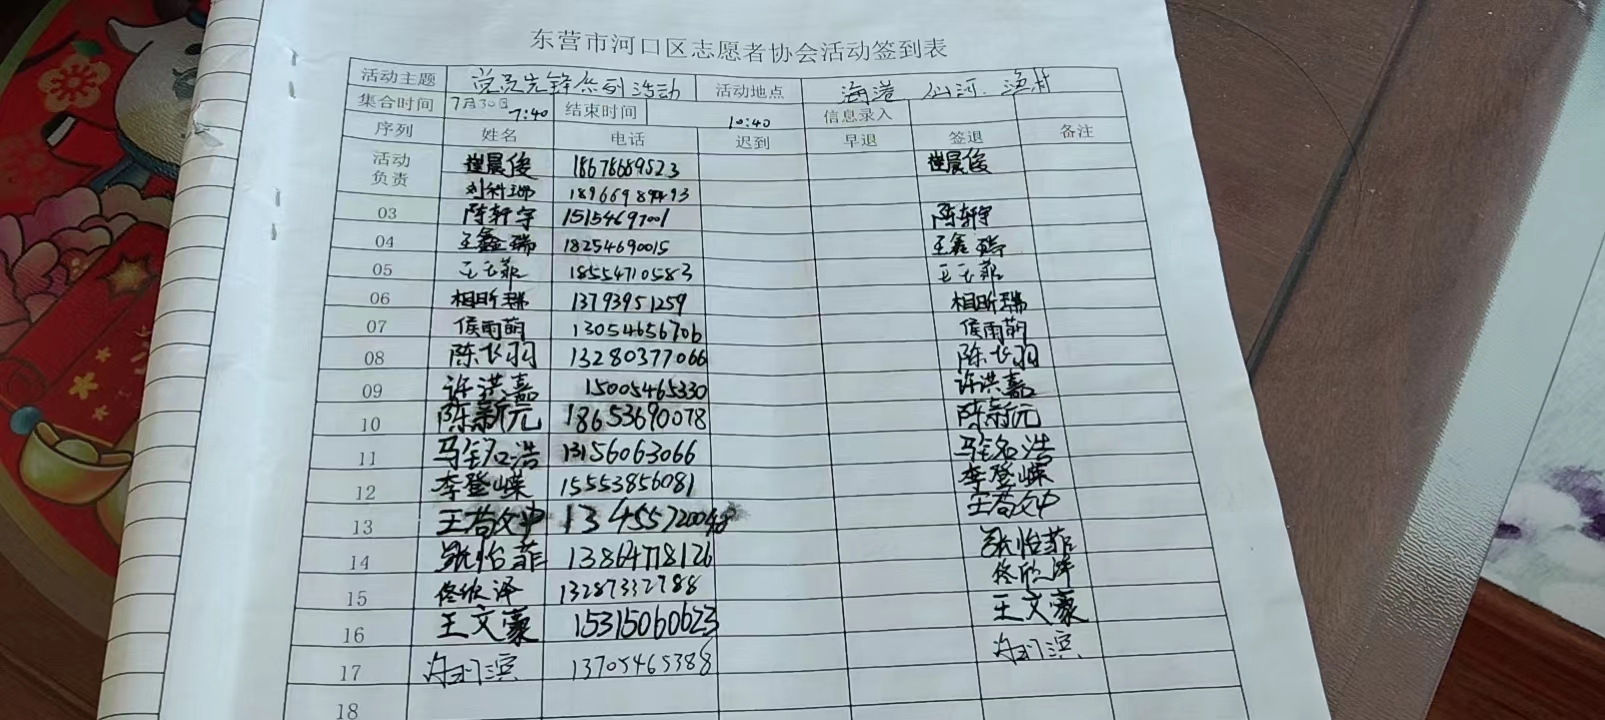 东营市河口区志愿者协会活动签到表
活动主题 党员先锋系列活动 活动地点 海港 仙河 渔村
集合时间 7月30日 7:40 结束时间 10:40 信息录入
序列 姓名 电话 迟到 早退 签退 备注
活动负责 晨俊 18678689523 晨俊
03 陈轩宇 15154697001 陈轩宇
04 王鑫瑞 18254690015 王鑫瑞
05 王云菲 18554710583 王云菲
06 相昕瑞 13793951259 相昕瑞
07 侯雨萌 13054656706 侯雨萌
08 陈长羽 13280377066 陈长羽
09 许洪嘉 15005465330 许洪嘉
10 陈新元 18653690078 陈新元
11 马铭浩 13156063066 马铭浩
12 李登嵘 15553856081 李登嵘
13 王苟文中 13455720048 王苟文中
14 张怡菲 13864778126 张怡菲
15 佟欣泽 13287332788 佟欣泽
16 王文豪 15315060623 王文豪
17 滨 13705465388 滨
18